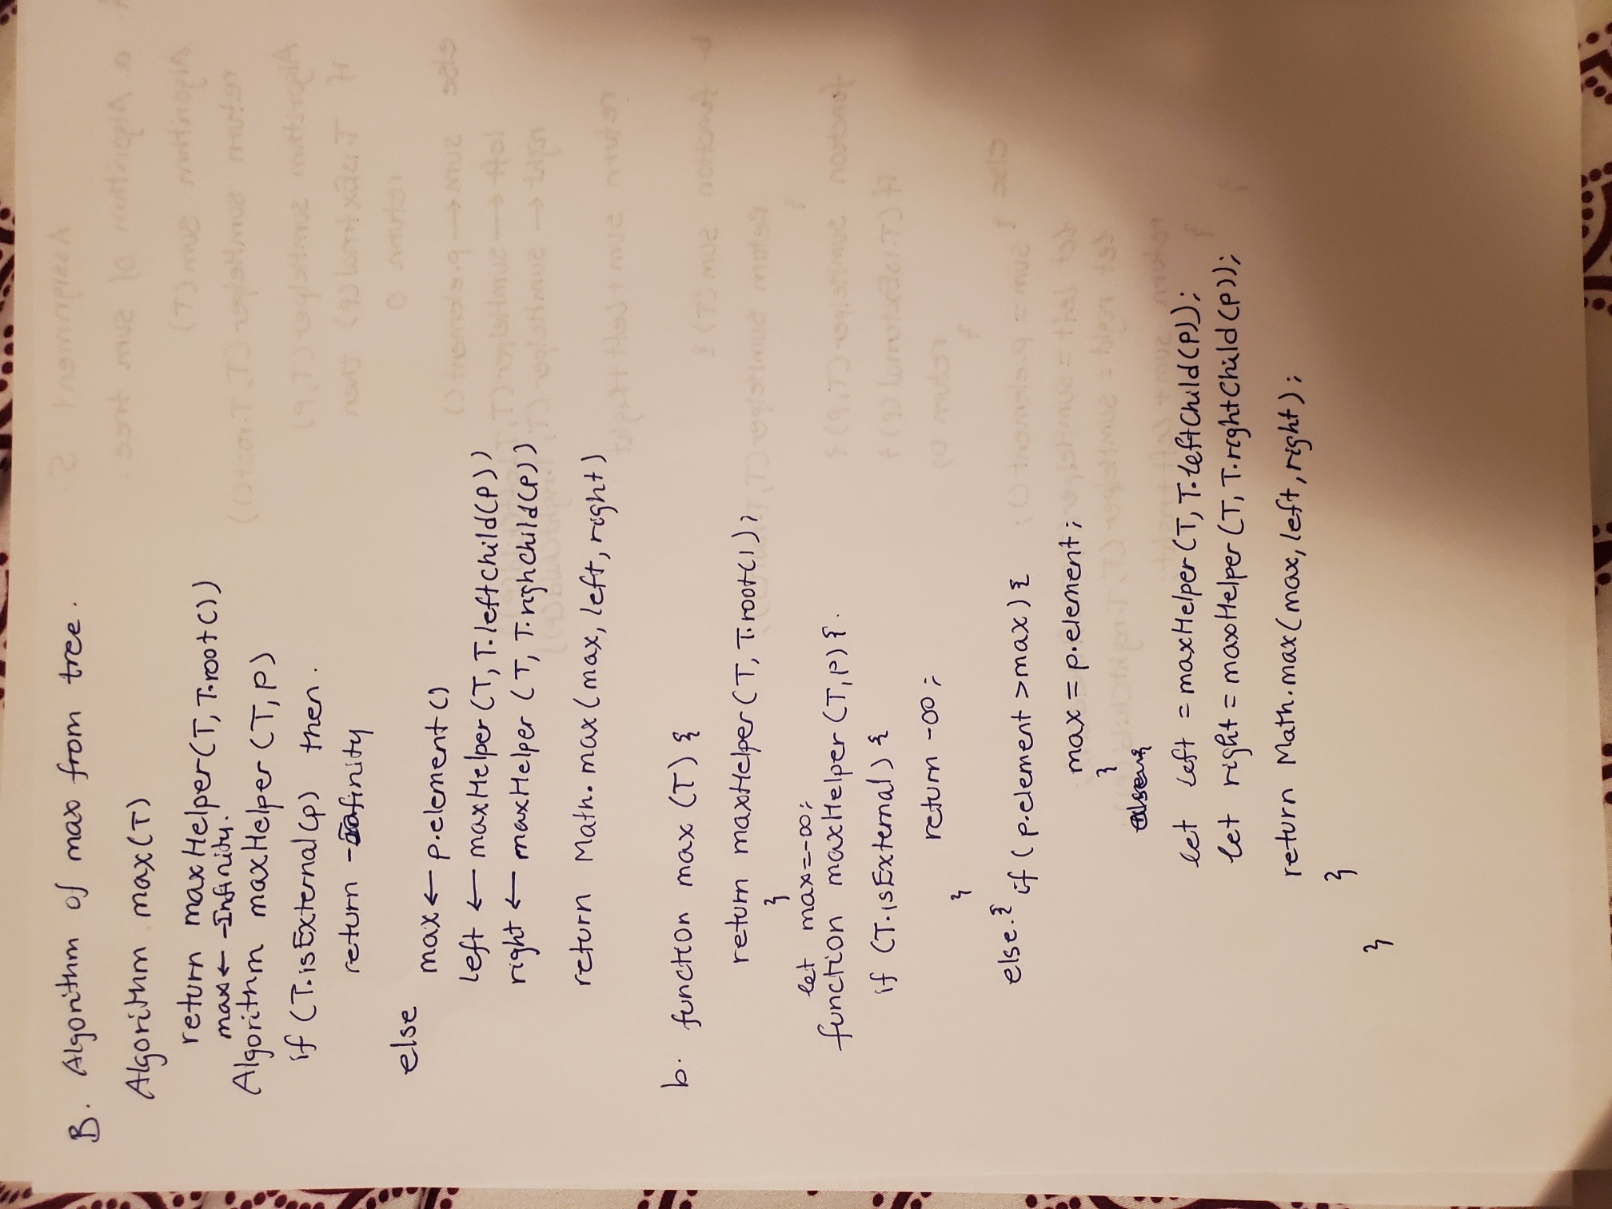 B. Algorithm of max from tree.
Algorithm max(T)
return maxHelper(T, T.root())
max ← -Infinity.
Algorithm maxHelper (T, P)
if (T.isExternal(p) then.
return -Infinity
else
max ← p.element()
left ← maxHelper (T, T.leftchild(P))
right ← maxHelper (T, T.righchild(P))
return Math.max(max, left, right)
b. function max (T) {
return maxHelper(T, T.root());
}
let max=-∞;
function maxHelper (T,P) {.
if (T.isExternal) {
return -∞;
}
else.{
if (p.element >max) {
max = p.element;
}
let left = maxHelper (T, T.leftChild(P));
let right = maxHelper (T, T.rightChild(P));
return Math.max(max, left, right);
}
}